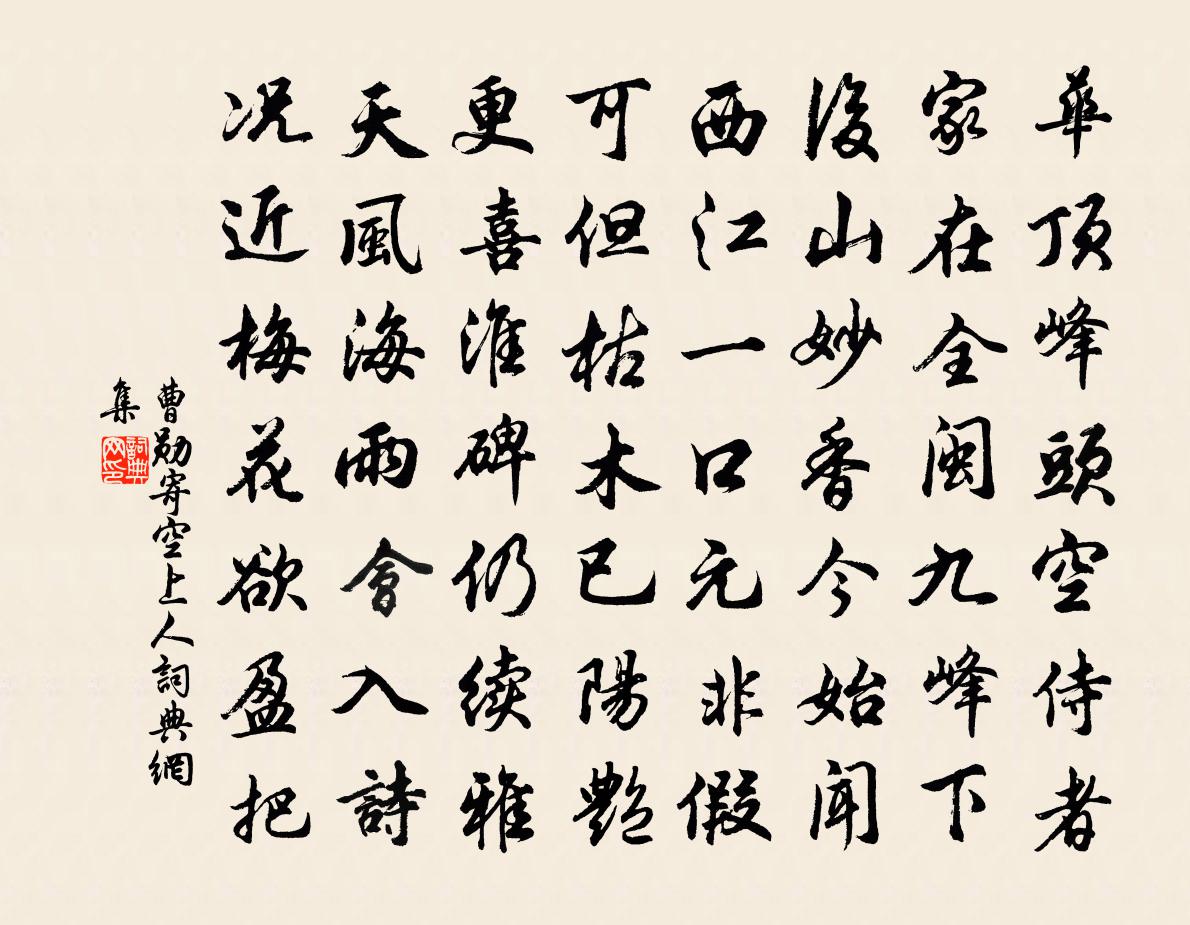 華頂峰頭空侍者
家在全閩九峰下
後山妙香今始聞
西江一口元非假
可但枯木已陽艷
更喜淮碑仍续雅
天風海雨會入詩
况近梅花欲盈把
曹勛寄空上人詞典網
集
詞典
网印